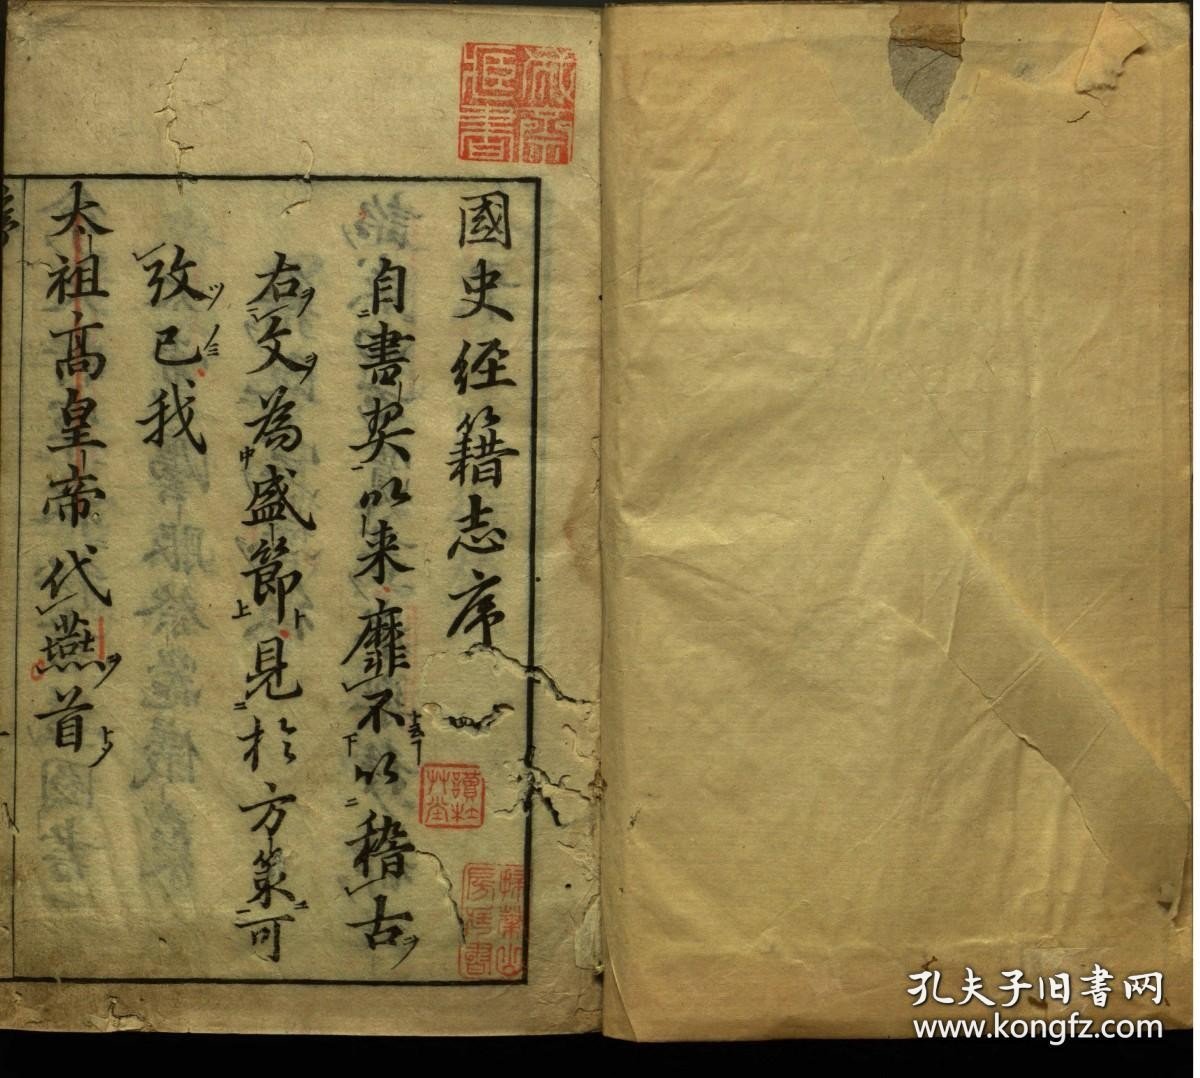 國史經籍志序
自書契以来靡不以稽古
右文為盛節見於方策可
攷已我
太祖高皇帝伐燕首
讀杜艸堂
孔夫子旧書网
www.kongfz.com